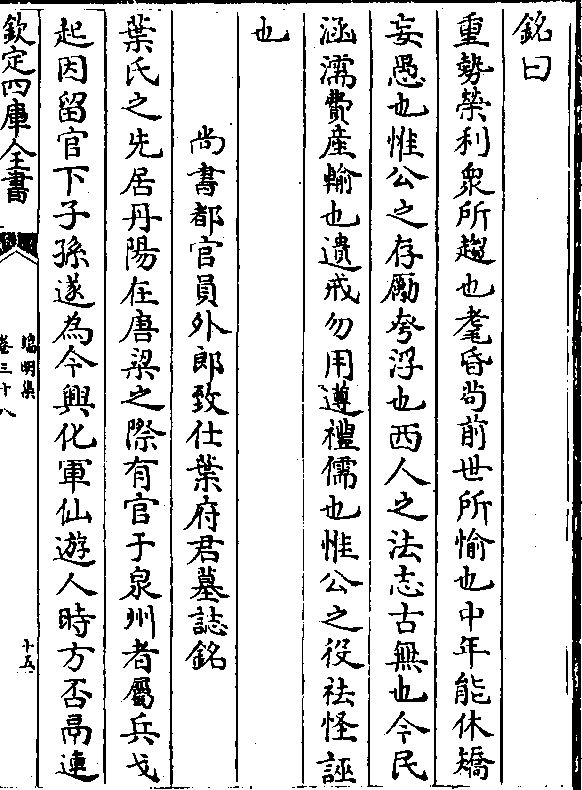 銘曰
重勢榮利衆所趨也耄昏苟前世所愉也中年能休矯
妄愚也惟公之存勵夸浮也西人之法志古無也今民
涵濡費産輸也遺戒勿用遵禮儒也惟公之役祛怪誣
也
尚書都官員外郎致仕葉府君墓誌銘
葉氏之先居丹陽在唐梁之際有官于泉州者屬兵戈
起因留官下子孫遂為今興化軍仙遊人時方否鬲連
欽定四庫全書
端明集
卷三十八
十五